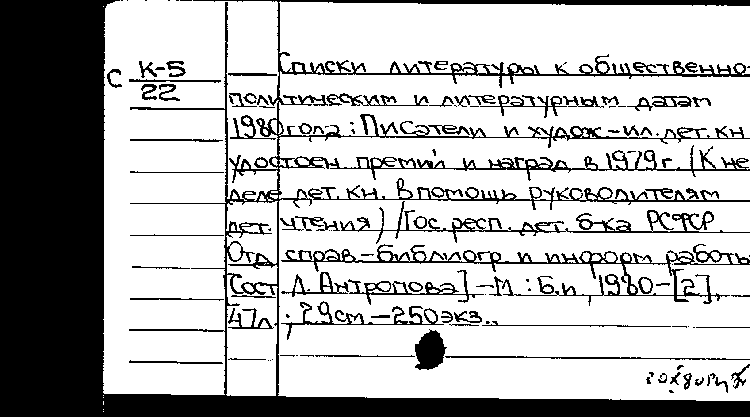 С К-5
22
Списки литературы к общественно-
политическим и литературным датам
1980 года: Писатели и худож-ил. дет. кн
удостоен. премий и наград в 1979 г. (К не
деле дет. кн. В помощь руководителям
дет. чтения) / Гос. респ. дет. б-ка РСФСР.
Отд справ.-библиогр. и информ работы
Сост Л. Антропова]. -М.: Б.и, 1980.-[2],
47л.; 29см. -250экз..